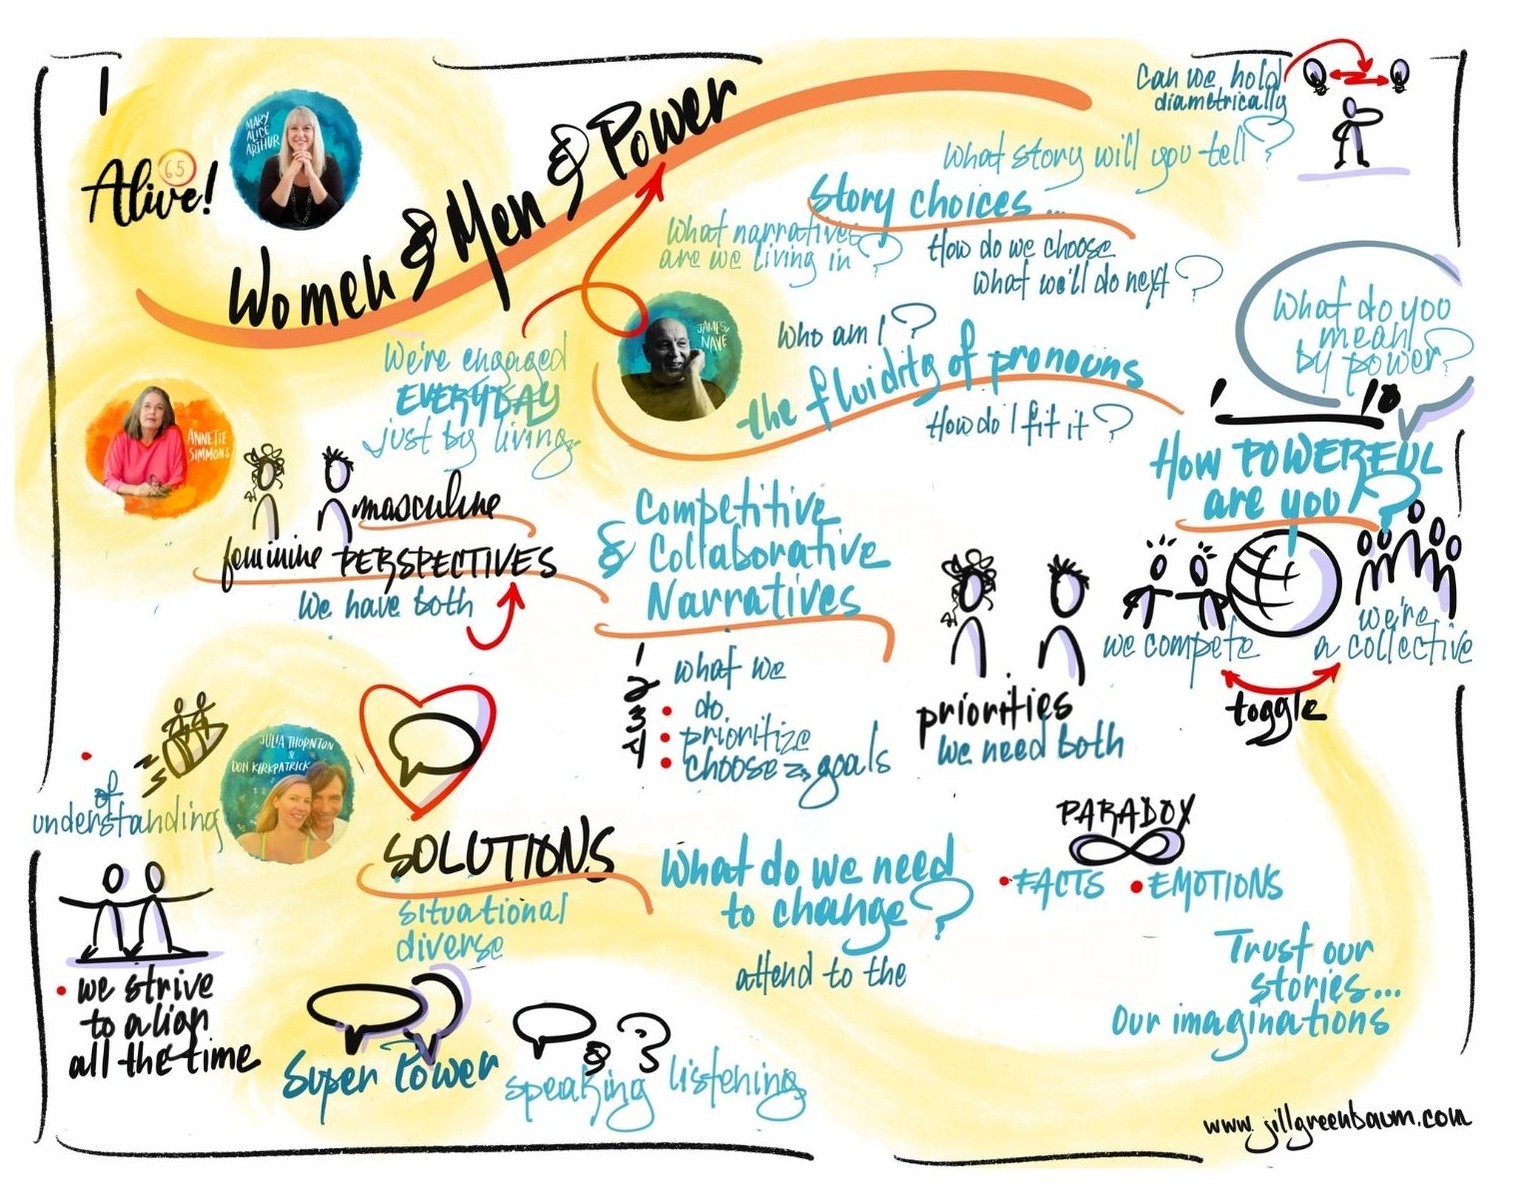 1
Alive!
65
MARY
ALICE
ARTHUR
Women & Men & Power
Can we hold
diametrically
What story will you tell?
Story choices...
What narratives
are we living in?
How do we choose
what we'll do next?
JAMES
NAVE
Who am I?
the fluidity of pronouns
How do I fit it?
What do you
mean
by power?
1
10
How POWERFUL
are you?
We're engaged
EVERYDAY
just by living
ANNETTE
SIMMONS
masculine
feminine PERSPECTIVES
We have both
Competitive
& Collaborative
Narratives
1
2
3
4
what we
• do
• prioritize
• choose goals
priorities
we need both
we compete
we're
a collective
toggle
of
understanding
JULIA THORNTON
&
DON KIRKPATRICK
SOLUTIONS
situational
diverse
What do we need
to change?
attend to the
PARADOX
• FACTS • EMOTIONS
Trust our
stories...
Our imaginations
• we strive
to align
all the time
Super Power
speaking & listening
www.jillgreenbaum.com